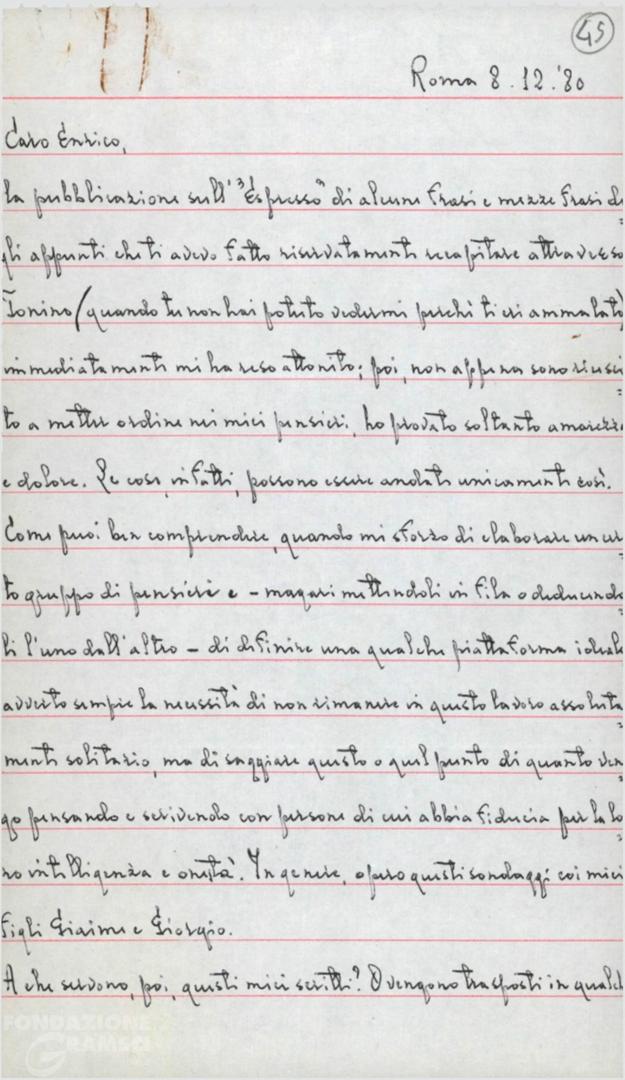 45
Roma 8.12.'80
Caro Enrico,
la pubblicazione sull'"Espresso" di alcune frasi e mezze frasi de
gli appunti che ti avevo fatto riservatamente recapitare attraverso
Tonino (quando tu non hai potuto vedermi perché ti eri ammalato)
immediatamente mi ha reso attonito; poi, non appena sono riusci=
to a mettere ordine nei miei pensieri, ho provato soltanto amarezza
e dolore. Le cose, infatti, possono essere andate unicamente così.
Come puoi ben comprendere, quando mi sforzo di elaborare un cer=
to gruppo di pensieri e – magari mettendoli in fila o deducendo=
li l'uno dall'altro – di definire una qualche piattaforma ideale
avverto sempre la necessità di non rimanere in questo lavoro assoluta=
mente solitario, ma di saggiare questo o quel punto di quanto ven=
go pensando e scrivendo con persone di cui abbia fiducia per la lo=
ro intelligenza e onestà. In genere, opero questi sondaggi coi miei
figli Giaime e Giorgio.
A che servono, poi, questi miei scritti? O vengono trasposti in qualch
FONDAZIONE
GRAMSCI